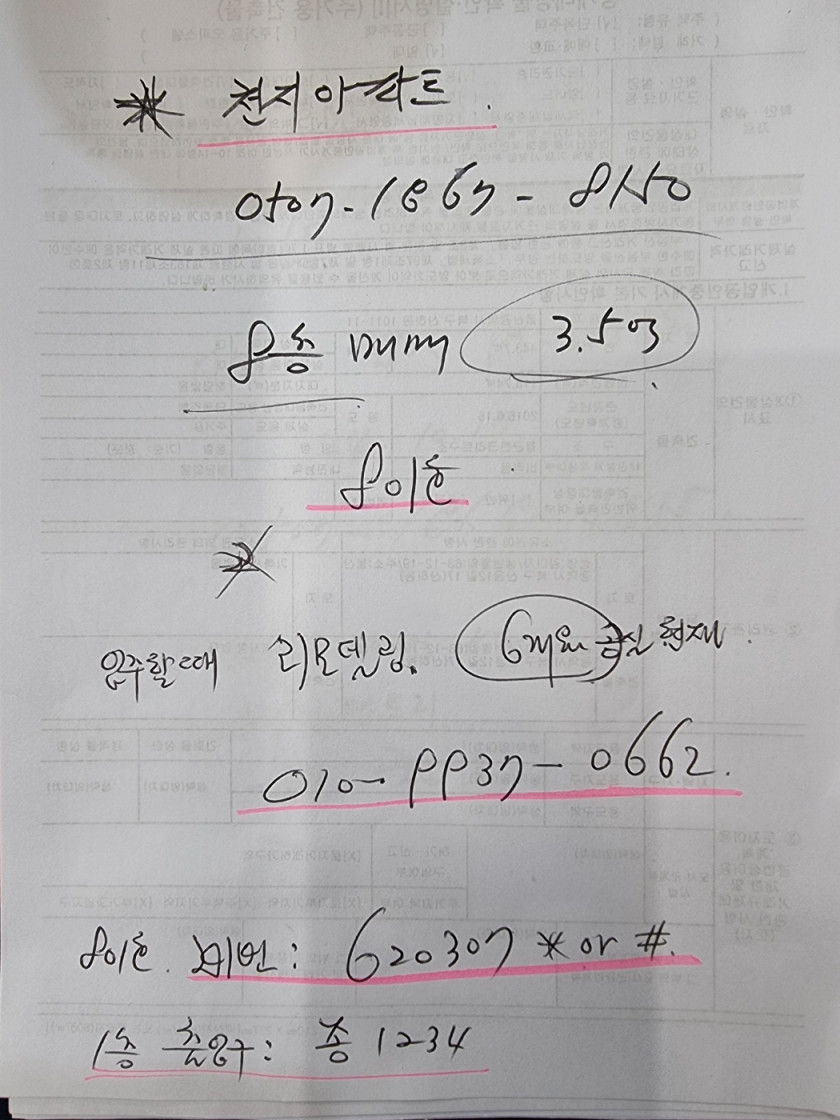 천지아파트.
0507-1867-8150
8층 매매 3.5억
801호
입주할때 리모델링. 6개월 공실 현재.
010-9937-0662.
801호. 비번: 620307 * or #.
1층 출입구: 종 1234